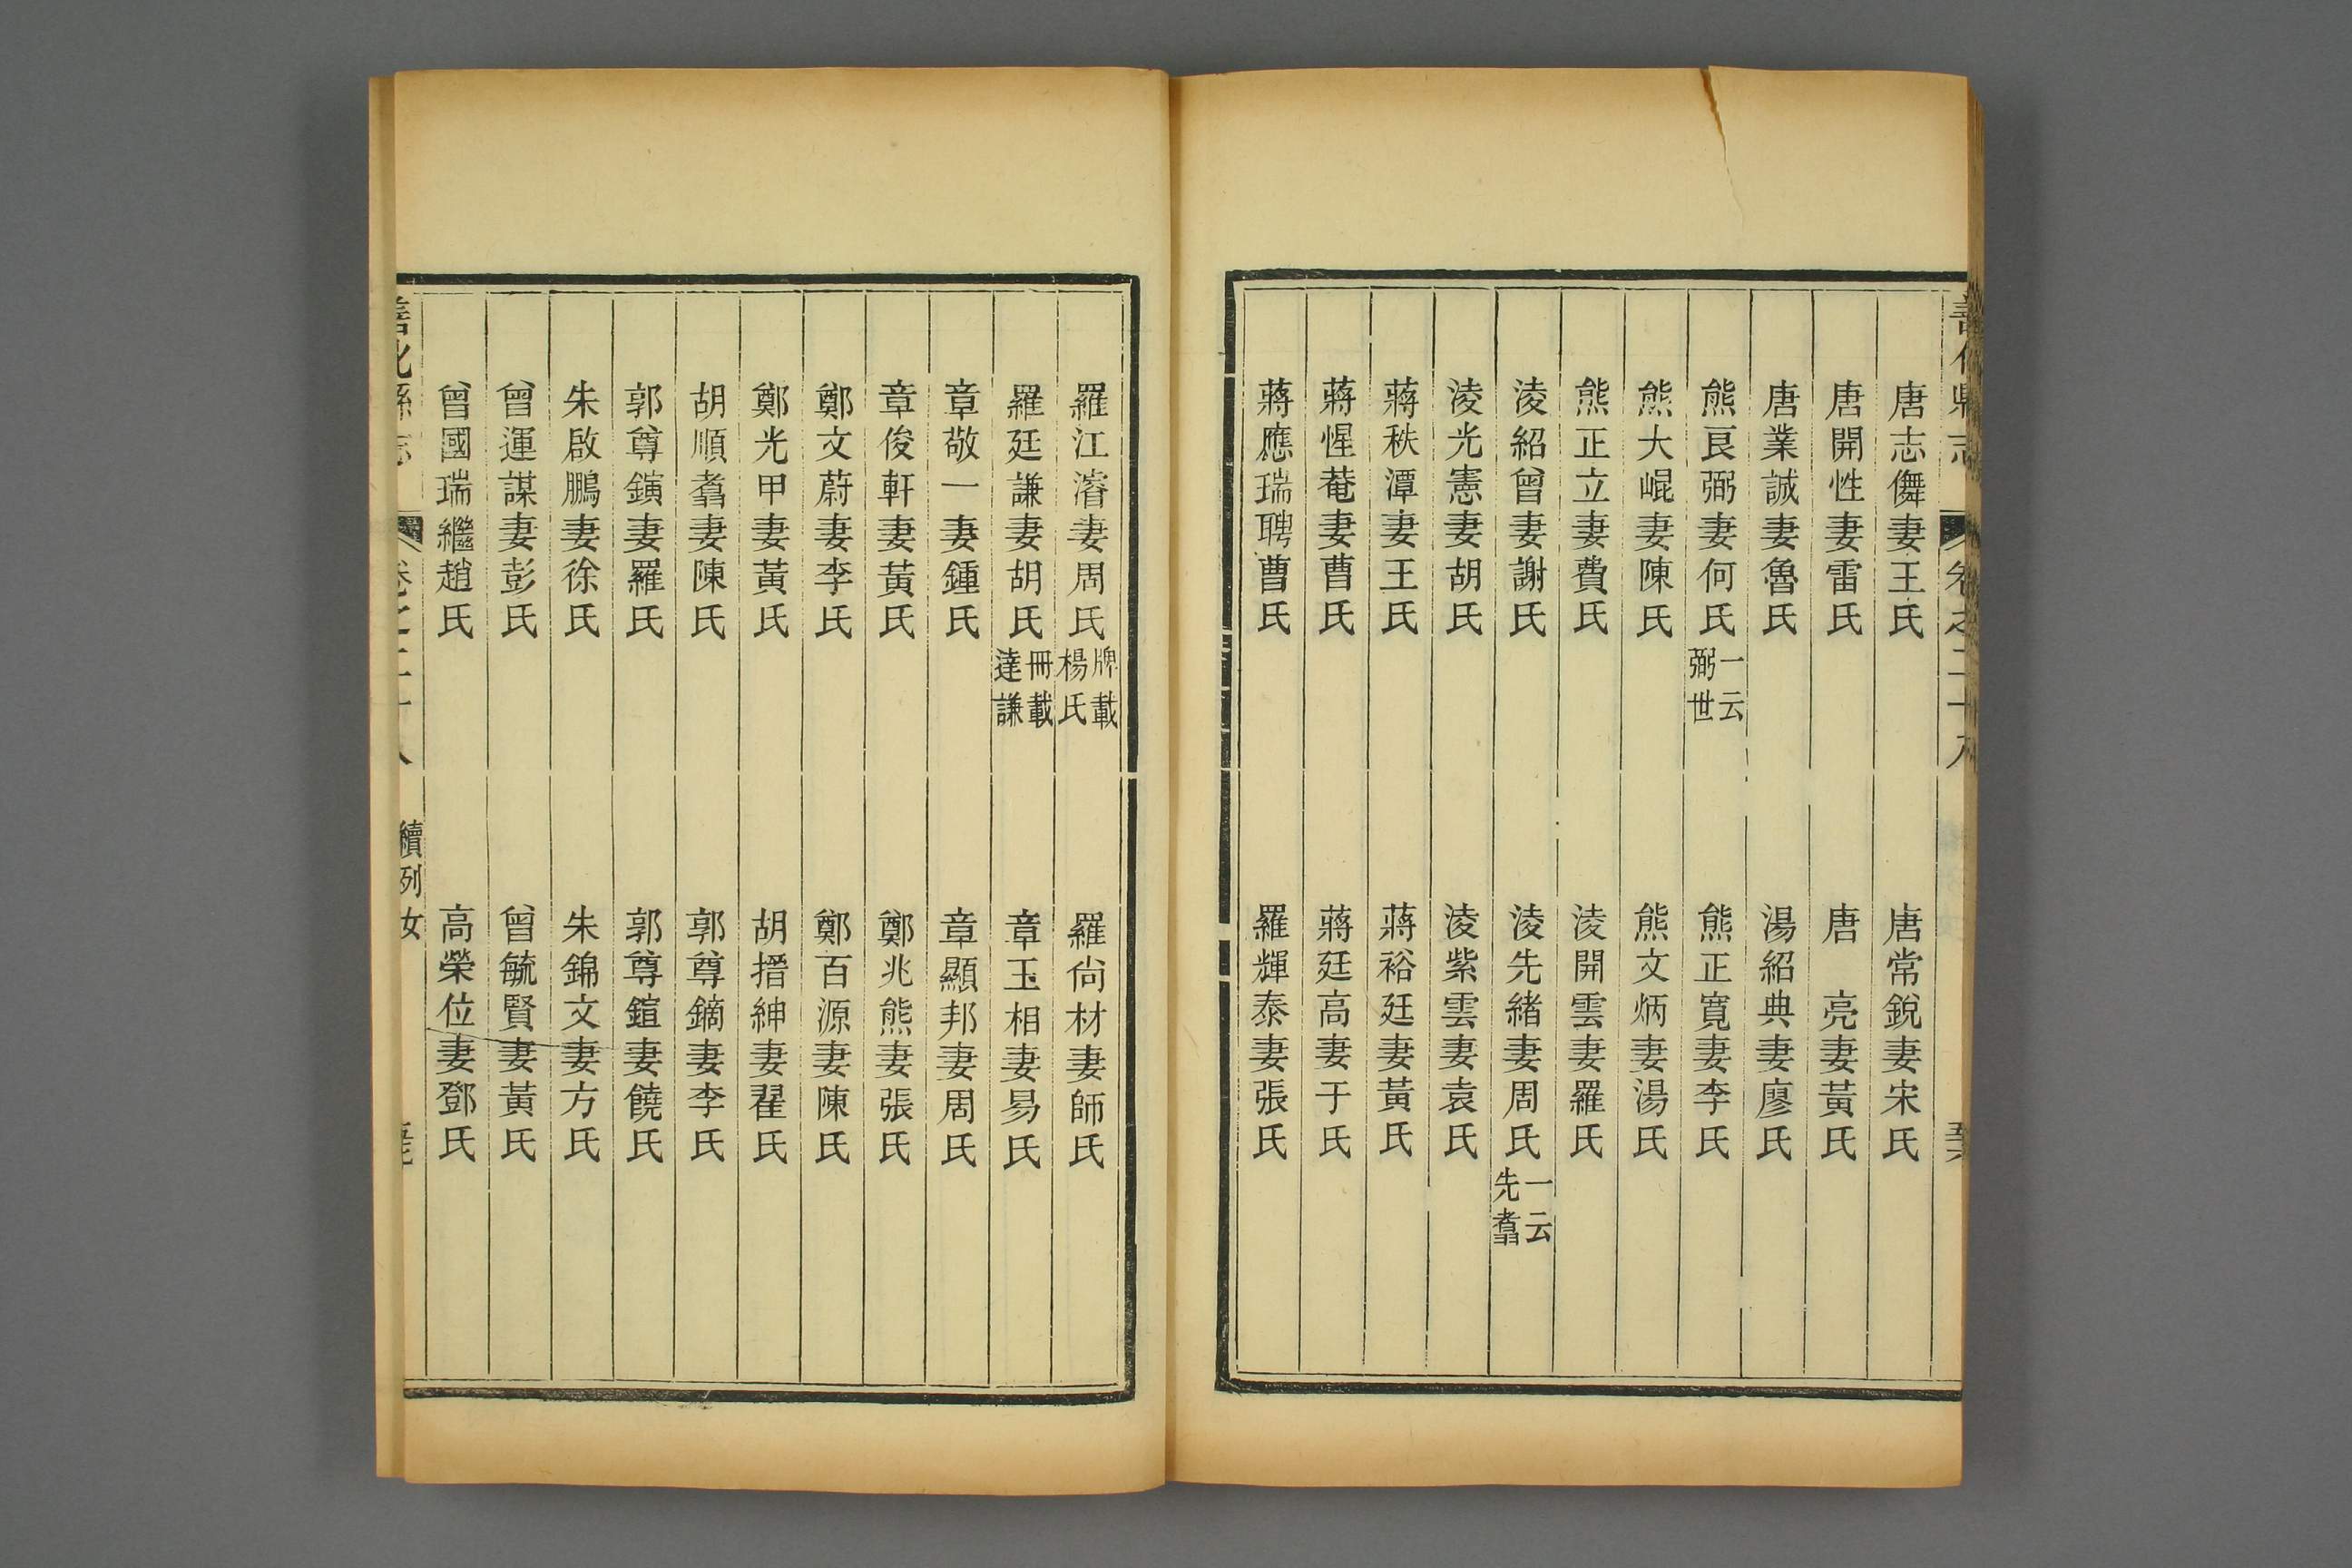 善化縣志 卷之二十八
唐志儛妻王氏 唐常銳妻宋氏
唐開性妻雷氏 唐 亮妻黃氏
唐業誠妻魯氏 湯紹典妻廖氏
熊良弼妻何氏 一云弼世 熊正寬妻李氏
熊大崐妻陳氏 熊文炳妻湯氏
熊正立妻費氏 淩開雲妻羅氏
淩紹曾妻謝氏 淩先緒妻周氏 一云先翥
淩光憲妻胡氏 淩紫雲妻袁氏
蔣秩潭妻王氏 蔣裕廷妻黃氏
蔣惺菴妻曹氏 蔣廷高妻于氏
蔣應瑞聘曹氏 羅輝泰妻張氏
羅江濬妻周氏 牌載楊氏 羅尙材妻師氏
羅廷謙妻胡氏 冊載達謙 章玉相妻易氏
章敬一妻鍾氏 章顯邦妻周氏
章俊軒妻黃氏 鄭兆熊妻張氏
鄭文蔚妻李氏 鄭百源妻陳氏
鄭光甲妻黃氏 胡搢紳妻翟氏
胡順翥妻陳氏 郭尊鏑妻李氏
郭尊鐄妻羅氏 郭尊鍹妻饒氏
朱啟鵬妻徐氏 朱錦文妻方氏
曾運謀妻彭氏 曾毓賢妻黃氏
曾國瑞繼趙氏 高榮位妻鄧氏
善化縣志 卷之二十八 續列女